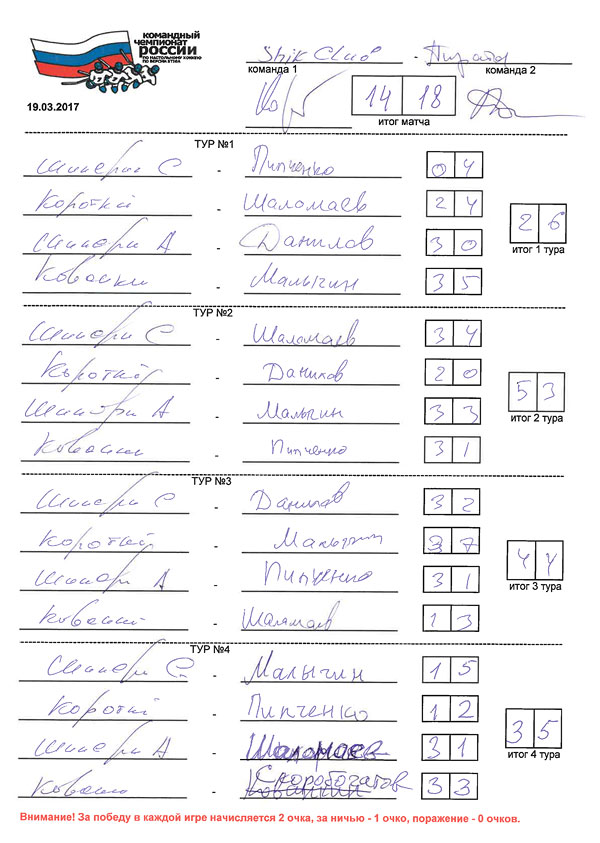 КОМАНДНЫЙ
ЧЕМПИОНАТ
РОССИИ
ПО НАСТОЛЬНОМУ ХОККЕЮ
ПО ВЕРСИИ STIGA
Shik Club - Пираты
команда 1 команда 2
14 18
итог матча
19.03.2017
ТУР №1
Шингери С - Пипченко 0 4
Короткий - Шаломаев 2 4
Шингери А - Данилов 3 0
Ковалин - Малыгин 3 5
2 6
итог 1 тура
ТУР №2
Шингери С - Шаломаев 3 4
Короткий - Данилов 2 0
Шингери А - Малыгин 3 3
- Пипченко 3 1
5 3
итог 2 тура
ТУР №3
Шингери С - Данилов 3 2
Короткий - Малыгин 3 7
Шингери А - Пипченко 3 1
- Шаломаев 1 3
4 4
итог 3 тура
ТУР №4
Шингери С - Малыгин 1 5
Короткий - Пипченко 1 2
Шингери А - Шаломаев 3 1
- Скоробогатов 3 3
3 5
итог 4 тура
Внимание! За победу в каждой игре начисляется 2 очка, за ничью - 1 очко, поражение - 0 очков.